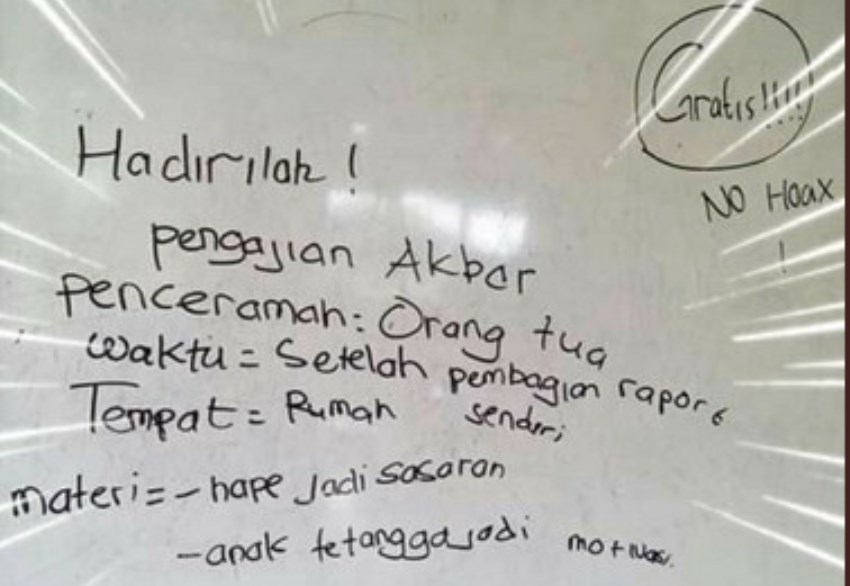 Gratis!!!!!
NO Hoax
!
Hadirilah !
pengajian Akbar
penceramah: Orang tua
waktu = Setelah pembagian raport
Tempat = Rumah sendiri
materi = - hape Jadi sasaran
- anak tetangga jadi motivasi.